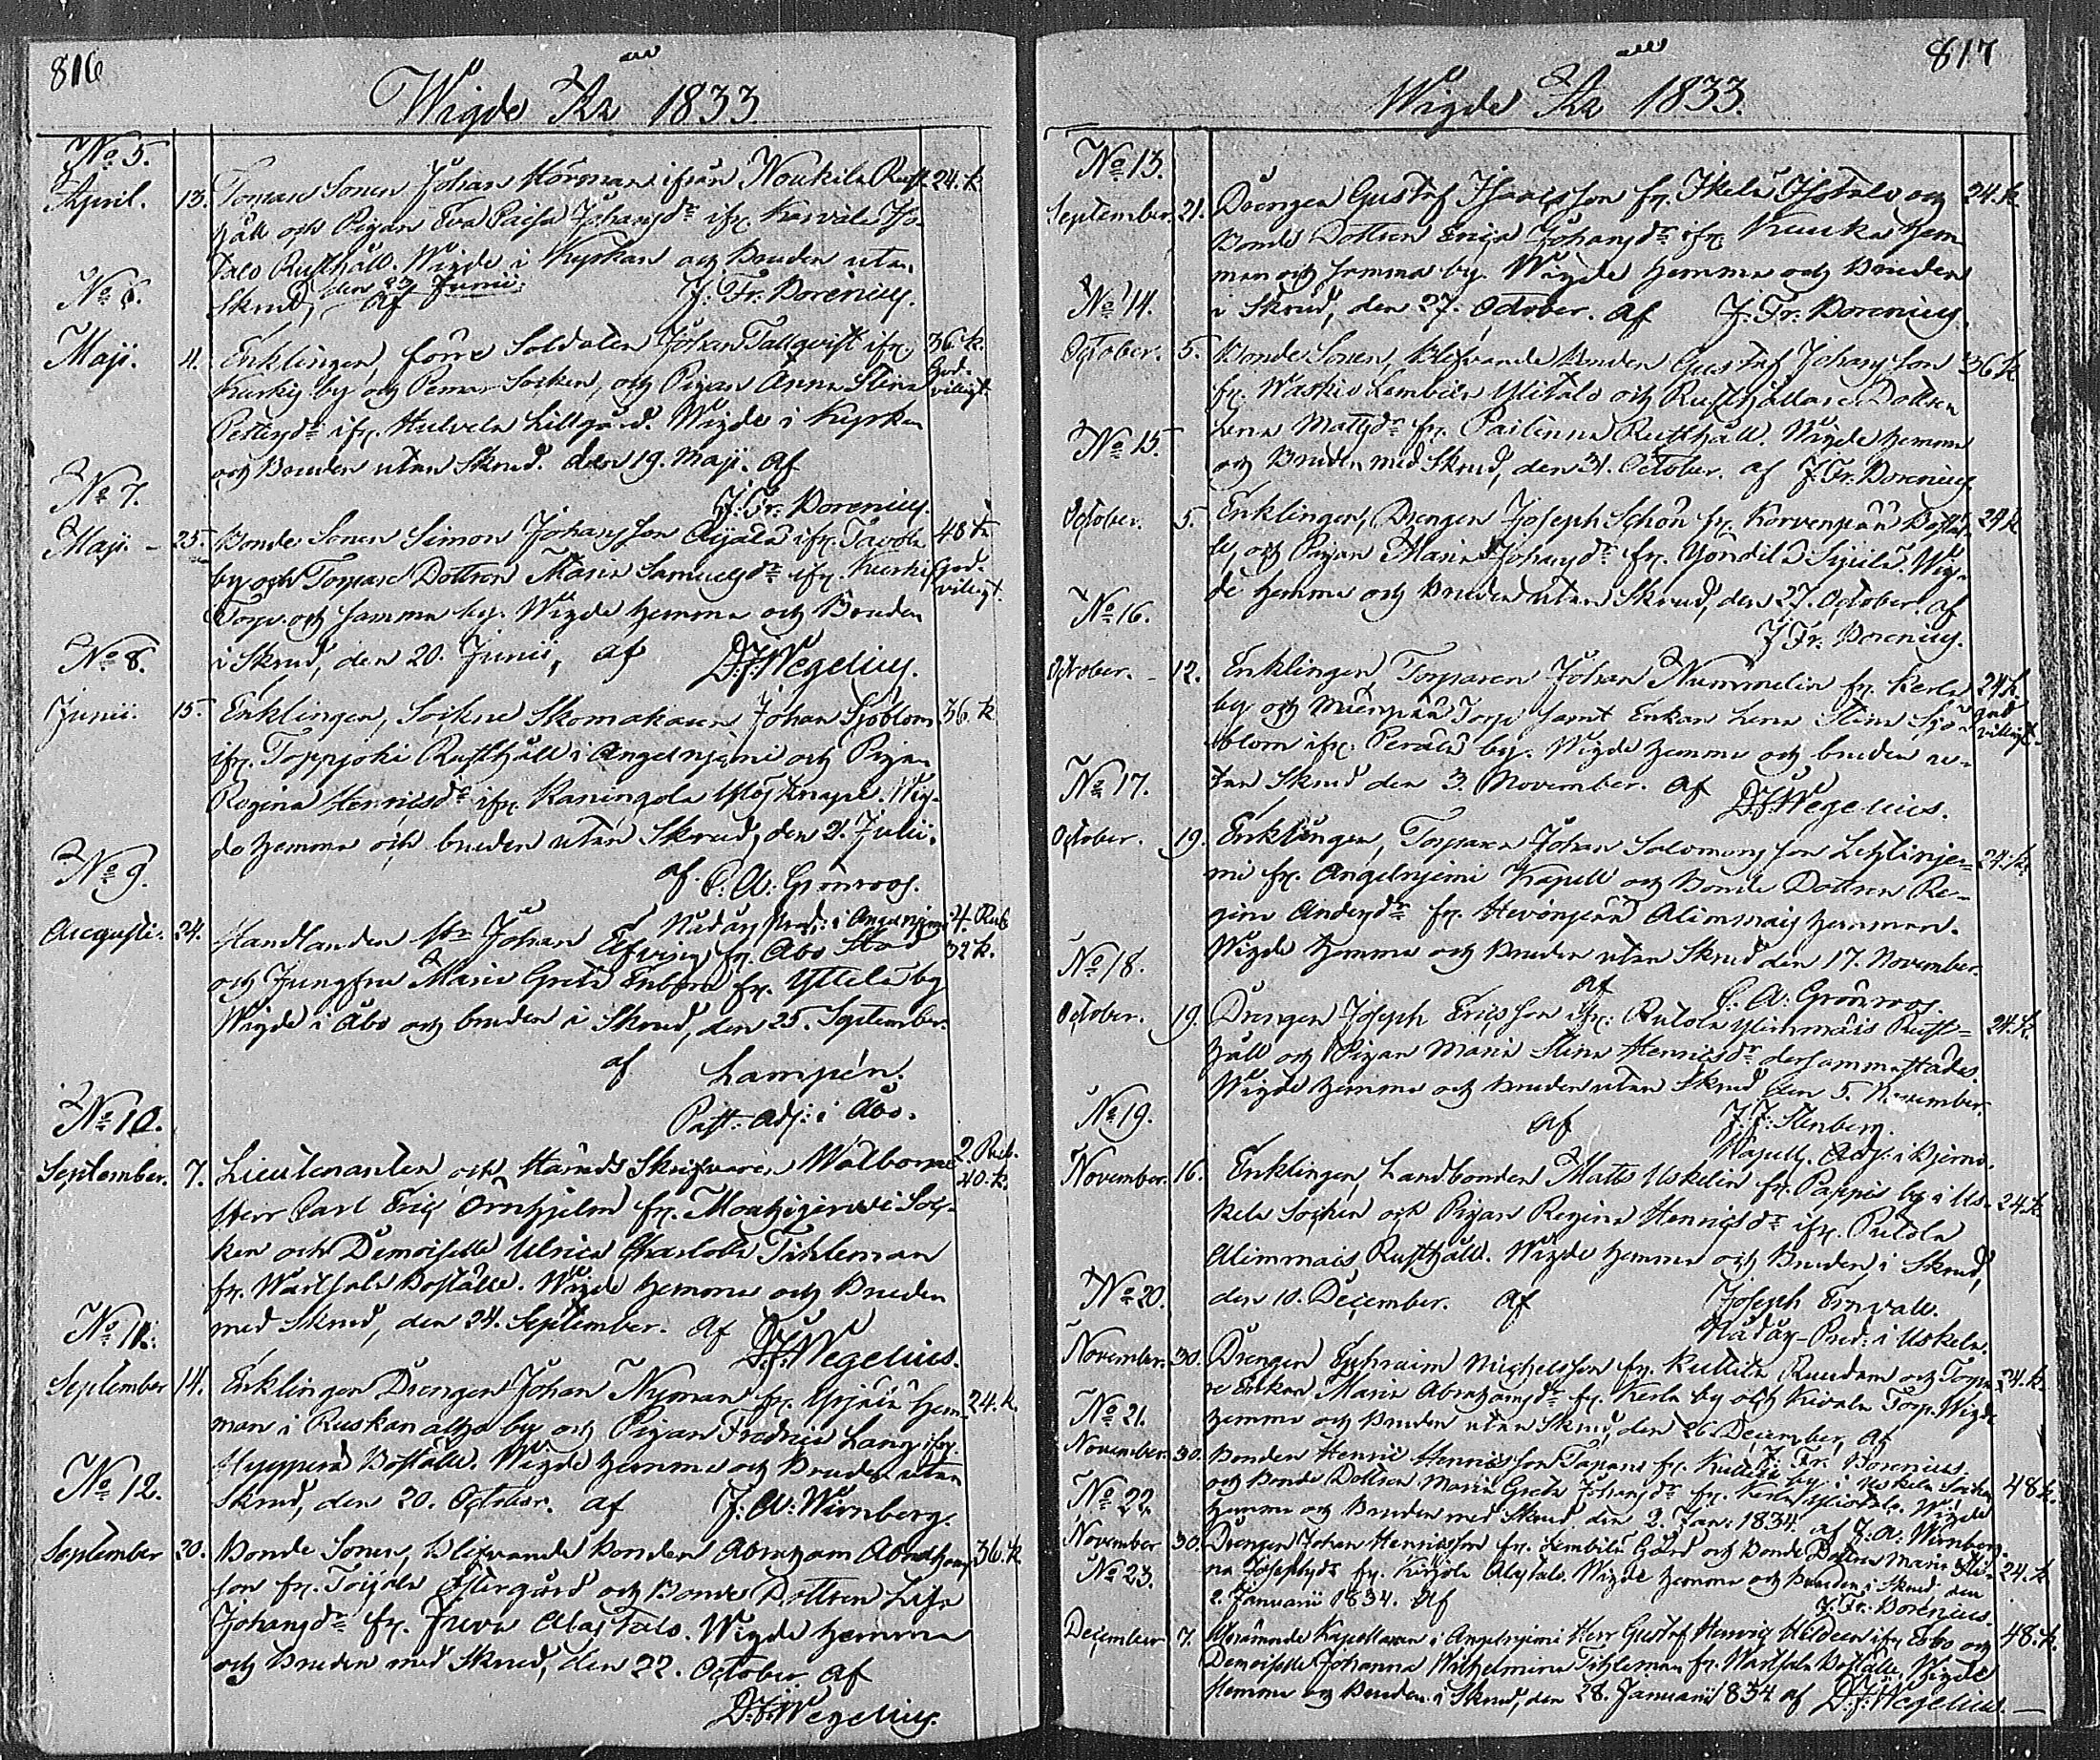 816
Wigde År 1833.
No 5.
April. 13. Torpare Sonen Johan Körman ifrån Noukila Rust- 24. k.
håll och Pigan Eva Caisa Johansdr ifr. Karvala Iso-
talo Rusthåll. Wigde i Kyrkan och Bruden utan
Skrud, den 23 Junii. af J. Fr. Borenius.
No 6.
Maji. 4. Enklingen, förre Soldaten Johan Tallqvist ifr. 36. k.
Kurkis by och Pemar Socken, och Pigan Anna Stina God-
villigt
Pettersdr ifr. Hulvela Lillgård. Wigde i Kyrkan
och Bruden utan Skrud. den 19. Maji. af
J. Fr. Borenius.
No 7.
Maji. - 25. Bonde Sonen Simon Johansson Äijälä ifr. Tavola 48 k.
by och Torpare Dottren Maria Samuelsdr ifr. Kurki God-
villigt.
Torp och samma by. Wigde hemma och Bruden
i Skrud, den 20. Junii, af D. J. Wegelius.
No 8.
Junii. 15. Enklingen, Sockne Skomakaren Johan Sjöblom 36. k
ifr. Toppjoki Rusthåll i Angelnjemi och Pigan
Regina Henricsdr ifr. Kaningola Knape. Wig-
de hemma och bruden utan Skrud, den 21. Julii.
af C. A. Grönroos.
Nådårs Pred: i Angelnjemi
No 9.
Augusti. 24. Handlanden Hr Johan Elfving fr. Åbo Stad 4. Rub
32 k.
och Jungfru Maria Greta Enbom fr. Yttela by
Wigde i Åbo och bruden i Skrud, den 25. September.
af Lampén.
Past: Adj: i Åbo.
No 10.
September. 7. Lieutenanten och Härads Skrifvaren Wälborne 2. Rub.
40. k.
Herr Carl Eric Örnhjelm fr. Mouhijerwi Soc-
ken och Demoiselle Ulrica Charlotta Tihleman
fr. Wartsala Boställe. Wigde hemma och Bruden
med Skrud, den 24. September. af D. J. Wegelius.
No 11.
September 14. Enklingen Drengen Johan Nyman fr. Yrjälä Hem- 24. k.
man i Ruskanaltza by och Pigan Fredrica Lang ifr.
Heepperi Boställe. Wigde hemma och Bruden utan
Skrud, den 20. October. af J. A. Wirnberg.
No 12.
September 20. Bonde Sonen, blifvande bonden Abraham Abrahams- 36. k
son fr. Toijala Östergård och Bonde Dottren Lisa
Johansdr fr. Juva Alastalo. Wigde hemma
och Bruden med Skrud, den 22. October af
D. J. Wegelius.
817
Wigde År 1833.
No 13.
September. 21. Drengen Gustaf Isacsson fr. Ikela Isotalo och 24. k
Bonde Dottren Erica Johansdr ifr. Kauka Hem-
man och samma by. Wigde hemma och Bruden
i Skrud, den 27. October. af J. Fr. Borenius.
No 14.
October. 5. Bonde Sonen, blifvande Bonden Gustaf Johansson 36 k
fr. Waskio Lembilä Ylitalo och Rusthållare Dottren
Lena Mattsdr fr. Pailinna Rusthåll. Wigde hemma
och Bruden med Skrud, den 31. October. af J. Fr. Borenius.
No 15.
October. 5. Enklingen, Drengen Joseph Schön fr. Korvenpää Bostäl- 24 k
le, och Pigan Maria Johansdr fr. Yöndilä Sipilä. Wig-
de hemma och Bruden utan Skrud, den 27. October. af
J. Fr. Borenius.
No 16.
October. - 12. Enklingen, Torparen Johan Nummelin fr. Kerla 24 k.
by och Mäenpää Torp samt Enkan Lena Stina Sjö- god
villigt.
blom ifr. Perälä by. Wigde hemma och bruden u-
tan Skrud den 3. November. af D. J. Wegelius.
No 17.
October. 19. Enklingen, Torparen Johan Salomonsson Lehtinje- 24. k.
mi fr. Angelnjemi Kapell och Bonde Dottren Re-
gina Andersdr fr. Hevonpää Alimmais Hemman.
Wigde hemma och Bruden utan Skrud den 17. November.
af C. A. Grönroos.
No 18.
October. 19. Drengen Joseph Ericsson ifr. Rutola Ylimmäis Rust- 24. k.
håll och Pigan Maria Stina Henricsdr dersammastädes.
Wigde hemma och Bruden utan Skrud den 5. November
af J. J. Stenberg.
Kapells Adj: i Bjerno.
No 19.
November. 16. Enklingen, Landbonden Matts Uskelin fr. Pappis by i Us- 24. k.
kela Socken och Pigan Regina Henricsdr ifr. Rutola
Alimmais Rusthåll. Wigde hemma och Bruden i Skrud,
den 10. December. af Joseph Ernvall.
Nådårs-Pred: i Uskela.
No 20.
November. 30. Drengen Ephraim Michelsson fr. Kuttila Ruudam och Torpa- 24. k.
re Enkan Maria Abrahamsdr fr. Kerla by och Kivala Torp. Wigde
hemma och Bruden utan Skrud, den 26. December, af
J. Fr. Borenius.
No 21.
November. 30. Bonden Henric Henricsson Tapani fr. Kuttila by i Uskela Socken
och Bonde Dottren Maria Greta Johansdr fr. Kerla Ylistalo. Wigde 48 k.
hemma och Bruden med Skrud den 2. Jan: 1834. af J. A. Wirnberg.
No 22.
November 30. Drengen Johan Henricsson fr. Lembilä Gård och Bonde Dottren Maria Sti-
na Josephsdr fr. Kirjola Alastalo. Wigde hemma och Bruden i Skrud den 24. k
2. Januarii 1834. af J. Fr. Borenius.
No 23.
December 7. Kapellanen i Angelnjemi Herr Gustaf Henric Hildeen ifr. Esbo och 48. k.
Demoiselle Johanna Wilhelmina Tihleman fr. Wartsala Boställe, Wigde
hemma och Bruden i Skrud, den 28. Januarii 1834 af D. J. Wegelius.